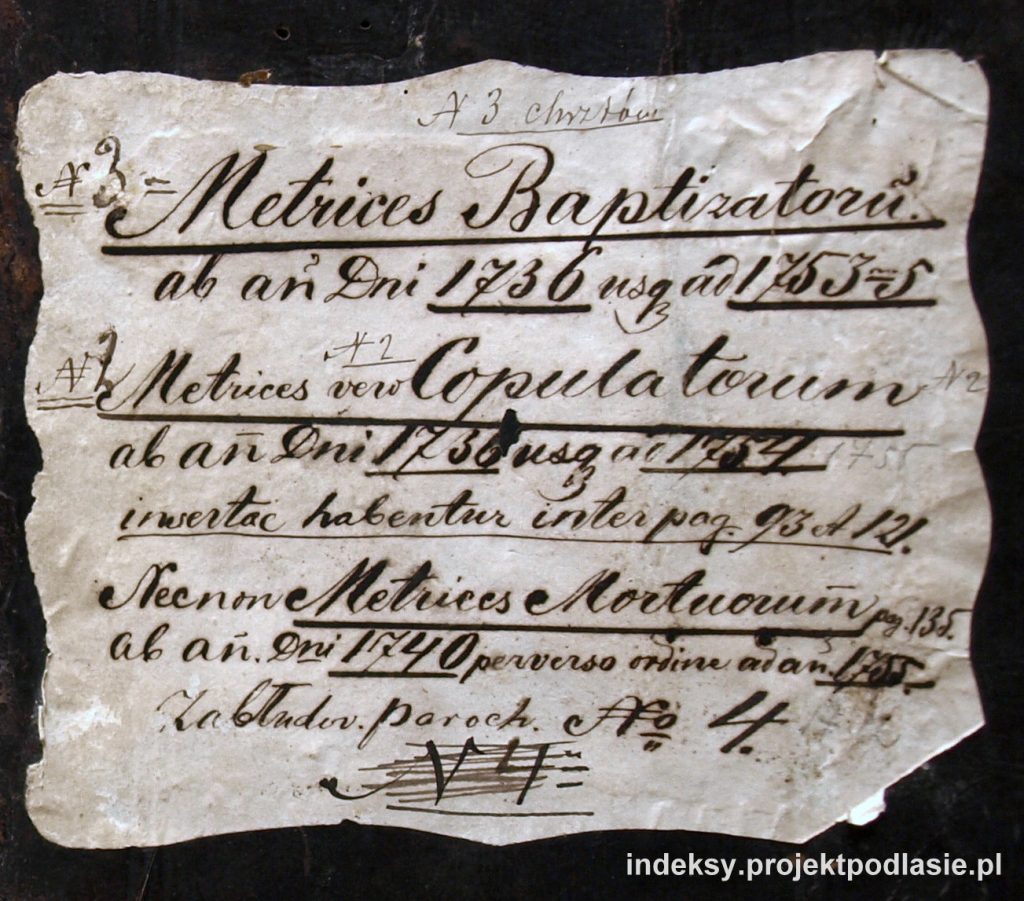 N 3 chrztów
N 3 = Metrices Baptizatorũ.
ab añ Dni 1736 usq ad 1753=5
N 2
N 2 Metrices vero Copulatorum N 2
ab añ Dni 1736 usq ad 1754 1755
insertae habentur inter pag. 93 et 121.
Necnon Metrices Mortuorum̃ pag. 135.
ab añ. Dni 1740 perverso ordine ad añ. 1755.
Zabłudov. paroch. No 4.
N 4
indeksy.projektpodlasie.pl